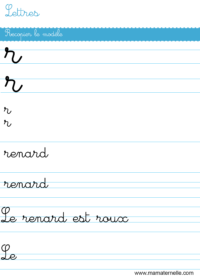 Lettres
Recopier le modèle
r
r
r
r
renard
renard
Le renard est roux
Le
www.mamaternelle.com